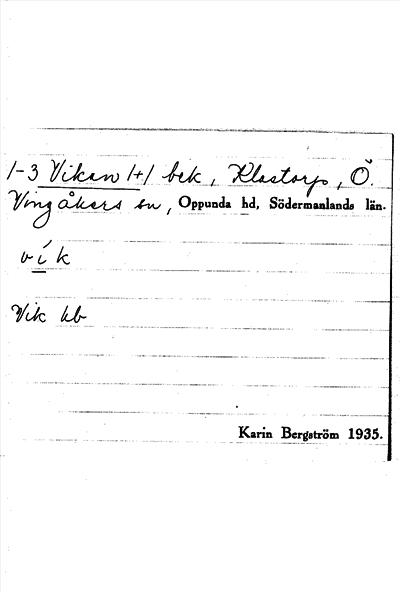 1-3 Vikan 1+1 bek, Klastorp, Ö.
Vingåkers sn, Oppunda hd, Södermanlands län.
vík
Vik kb
Karin Bergström 1935.